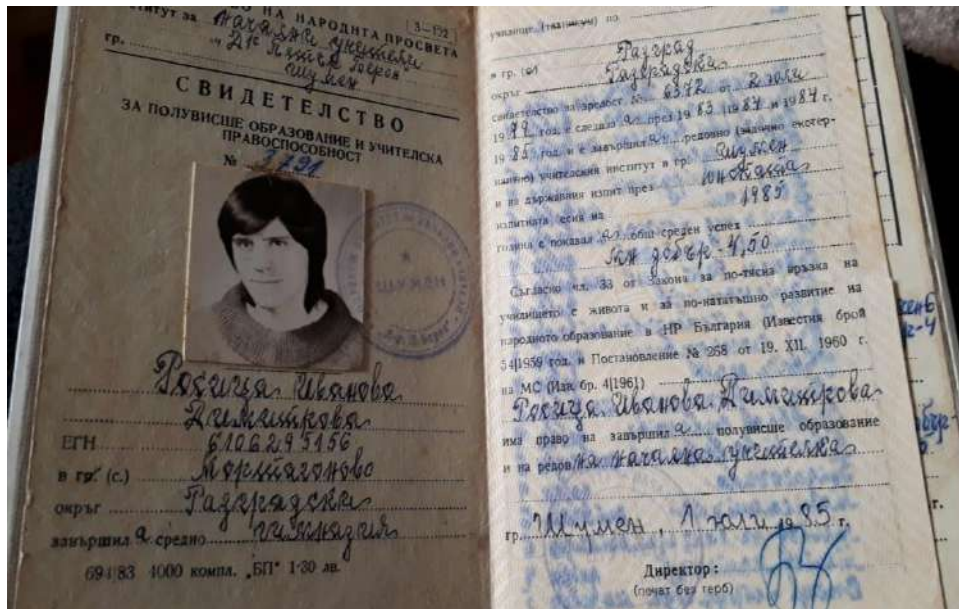 О НА НАРОДНТА ПРОСВЕТА
З-152
титут за начални учители
гр. „Д-р Петър Берон"
Шумен
СВИДЕТЕЛСТВО
ЗА ПОЛУВИСШЕ ОБРАЗОВАНИЕ И УЧИТЕЛСКА
ПРАВОСПОСОБНОСТ
№ 3791
ШУМЕН
Росица Иванова
Димитрова
ЕГН 6106295156
в гр. (с.) Мортагоново
окръг Разградски
завършил а средно гимназия
694|83 4000 компл. „БП" 1·30 лв.
училище (техникум) по
в гр. (с) Разград
окръг Разградски
свидетелство за зрелост № 6372 от 2 юли
19 год. е следвал а през 19 83 |19 84 и 19 84 г.
19 85 год. и е завършил а редовно (задочно екстер-
натно) учителския институт в гр. Шумен
и на държавния изпит през юнската
изпитната есия на 1985
година е показал а общ среден успех
Мн добър - 4,50
Съгласно чл. 33 от Закона за по-тясна връзка на
училището с живота и за по-нататъшно развитие на
народното образование в НР България (Известия брой
54|1959 год. и Постановление № 268 от 19. XII. 1960 г.
на МС (Изв. бр. 4|1961)
Росица Иванова Димитрова
има право на завършил а полувисше образование
и на редовна начална учителка
гр. Шумен, 1 юли 19 85 г.
Директор:
(печат без герб)